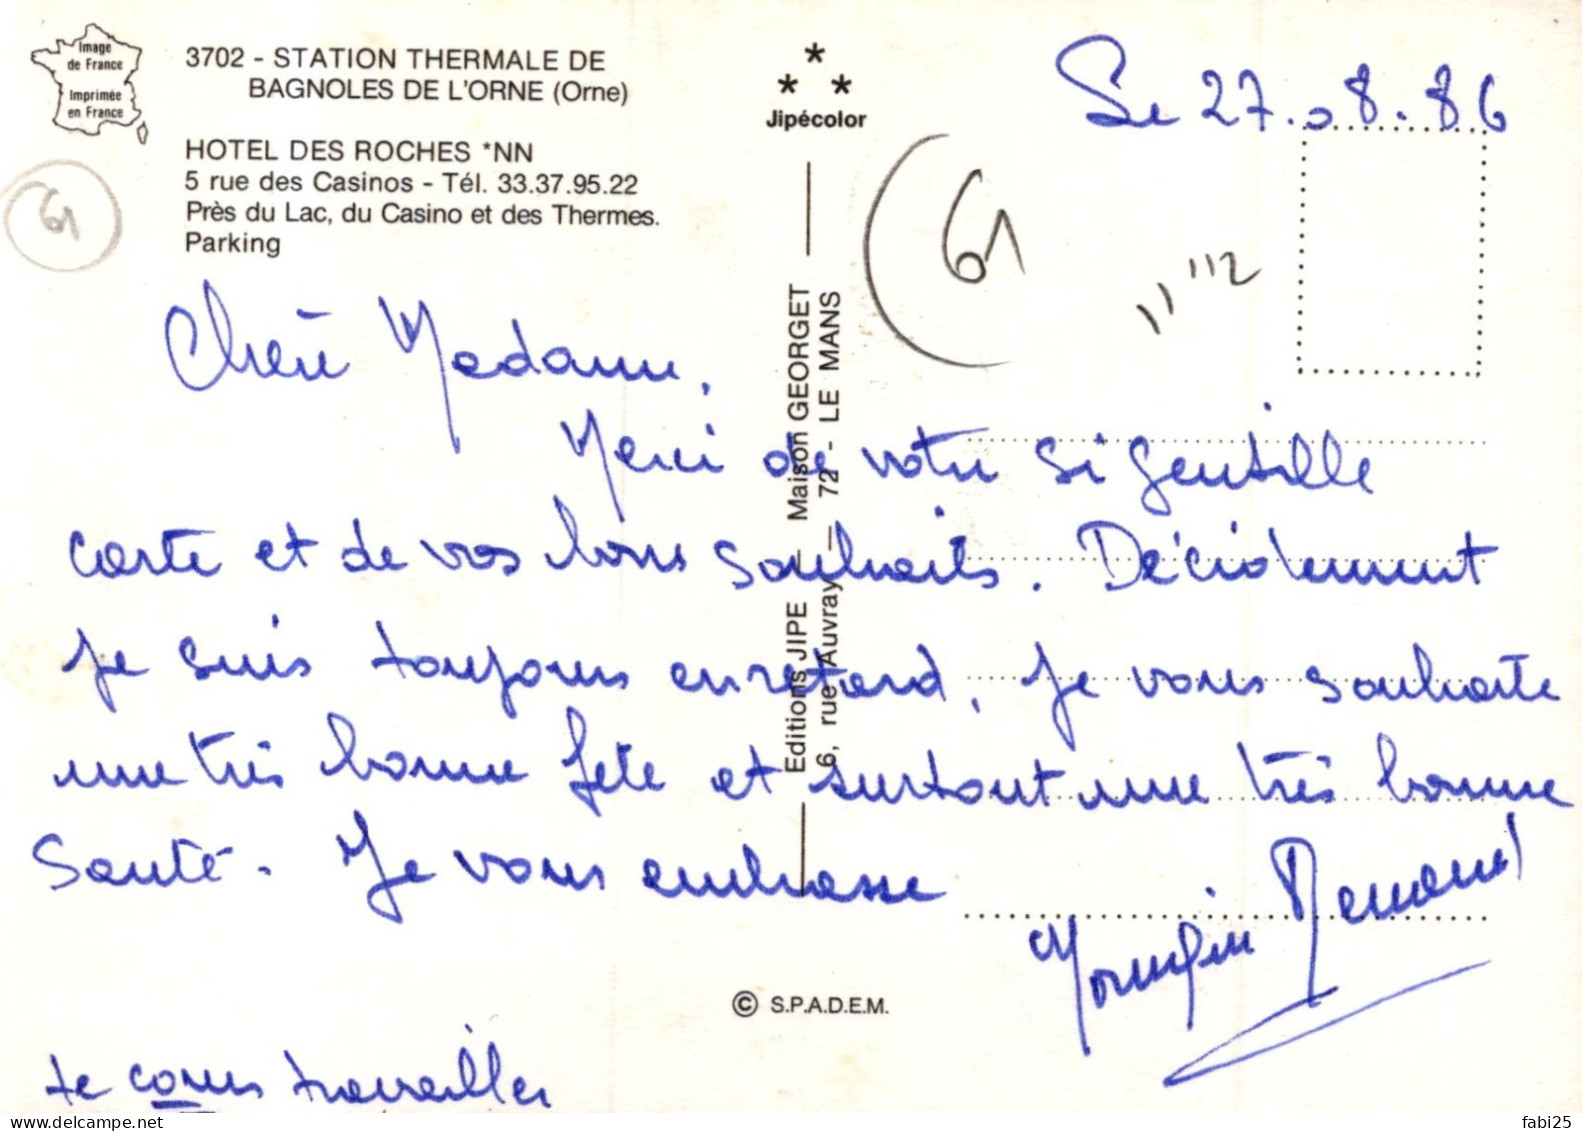 Image
de France
Imprimée
en France
3702 - STATION THERMALE DE
BAGNOLES DE L'ORNE (Orne)
HOTEL DES ROCHES *NN
5 rue des Casinos - Tél. 33.37.95.22
Près du Lac, du Casino et des Thermes.
Parking
61
Jipécolor
Le 27.08.86
61
Chère Madame,
Merci de votre si gentille
carte et de vos bons souhaits. Décidement
je suis toujours en retard. Je vous souhaite
une très bonne fête et surtout une très bonne
santé. Je vous embrasse
Renand
Je cours travailler
Editions JIPE — Maison GEORGET
6, rue Auvray — 72 - LE MANS
© S.P.A.D.E.M.
www.delcampe.net
fabi25